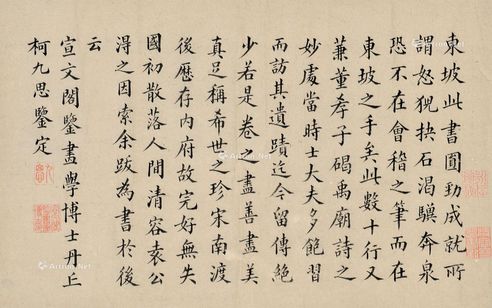 東坡此書圓勁成就所
謂怒猊抉石渴驥奔泉
恐不在會稽之筆而在
東坡之手矣此數十行又
蒹董孝子碣禹廟詩之
妙處當時士大夫多飽習
而訪其遺蹟迄今留傳絕
少若是卷之盡善盡美
真足稱希世之珍宋南渡
後歷存内府故完好無失
國初散落人間清容袁公
淂之因索余跋為書於後
云
宣文閣鑒畫學博士丹丘
柯九思鑒定